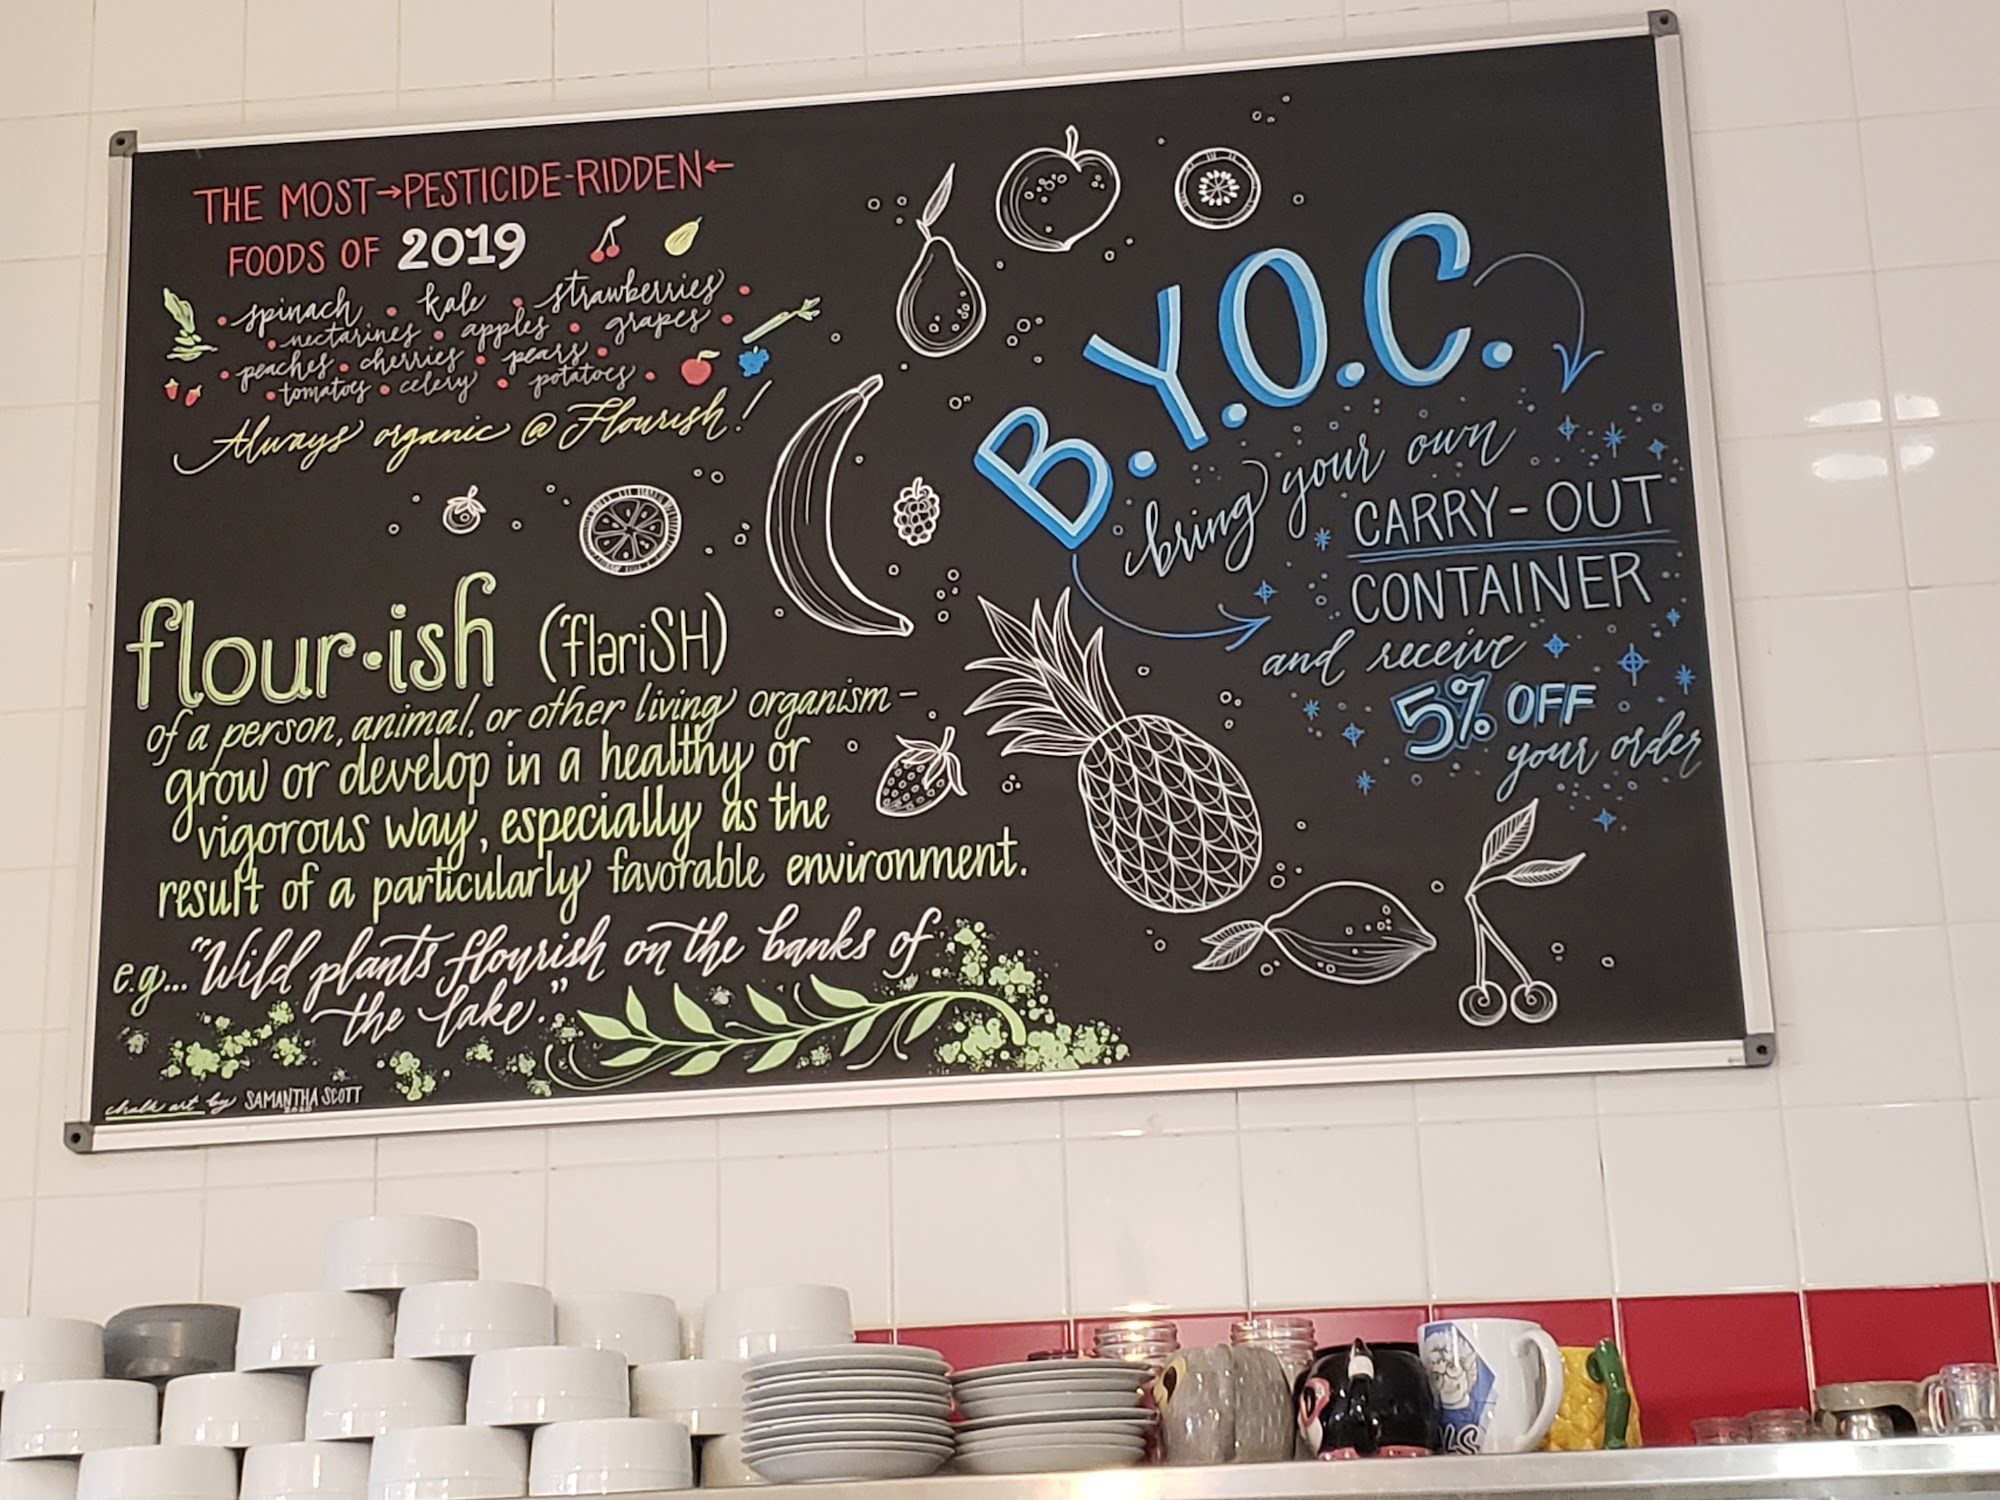 THE MOST→PESTICIDE-RIDDEN←
FOODS OF 2019
• spinach • kale • strawberries •
• nectarines • apples • grapes •
• peaches • cherries • pears •
• tomatoes • celery • potatoes •
Always organic @ Flourish!
flour•ish (ˈfləriSH)
of a person, animal, or other living organism –
grow or develop in a healthy or
vigorous way, especially as the
result of a particularly favorable environment.
e.g... "Wild plants flourish on the banks of
the lake."
chalk art by SAMANTHA SCOTT
2020
B.Y.O.C.
bring your own
CARRY-OUT
CONTAINER
and receive
5% OFF
your order